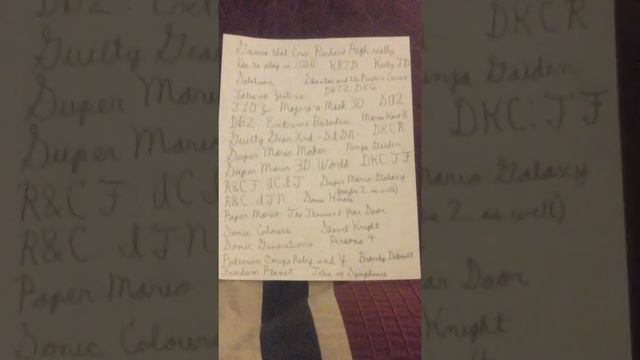 Games that Eric Richard really
has to play in 2016 KRTD Kirby TD
Splatoon Shantae and the Pirate's Curse
Tales of Zestiria DKC2 DKQ
TLOZ Majora's Mask 3D
DBZ: Extreme Butoden Mario Kart 8
Guilty Gear Xrd -SIGN- DKCR
Super Mario Maker Ninja Gaiden
Super Mario 3D World DKC:TF
R&C F Super Mario Galaxy
(maybe 2 as well)
R&C ITN Sonic Heroes
Paper Mario The Thousand Year Door
Sonic Colours Shovel Knight
Sonic Generations Persona 4
Pokemon Omega Ruby and Y Bravely Default
Freedom Planet Tales of Symphonia